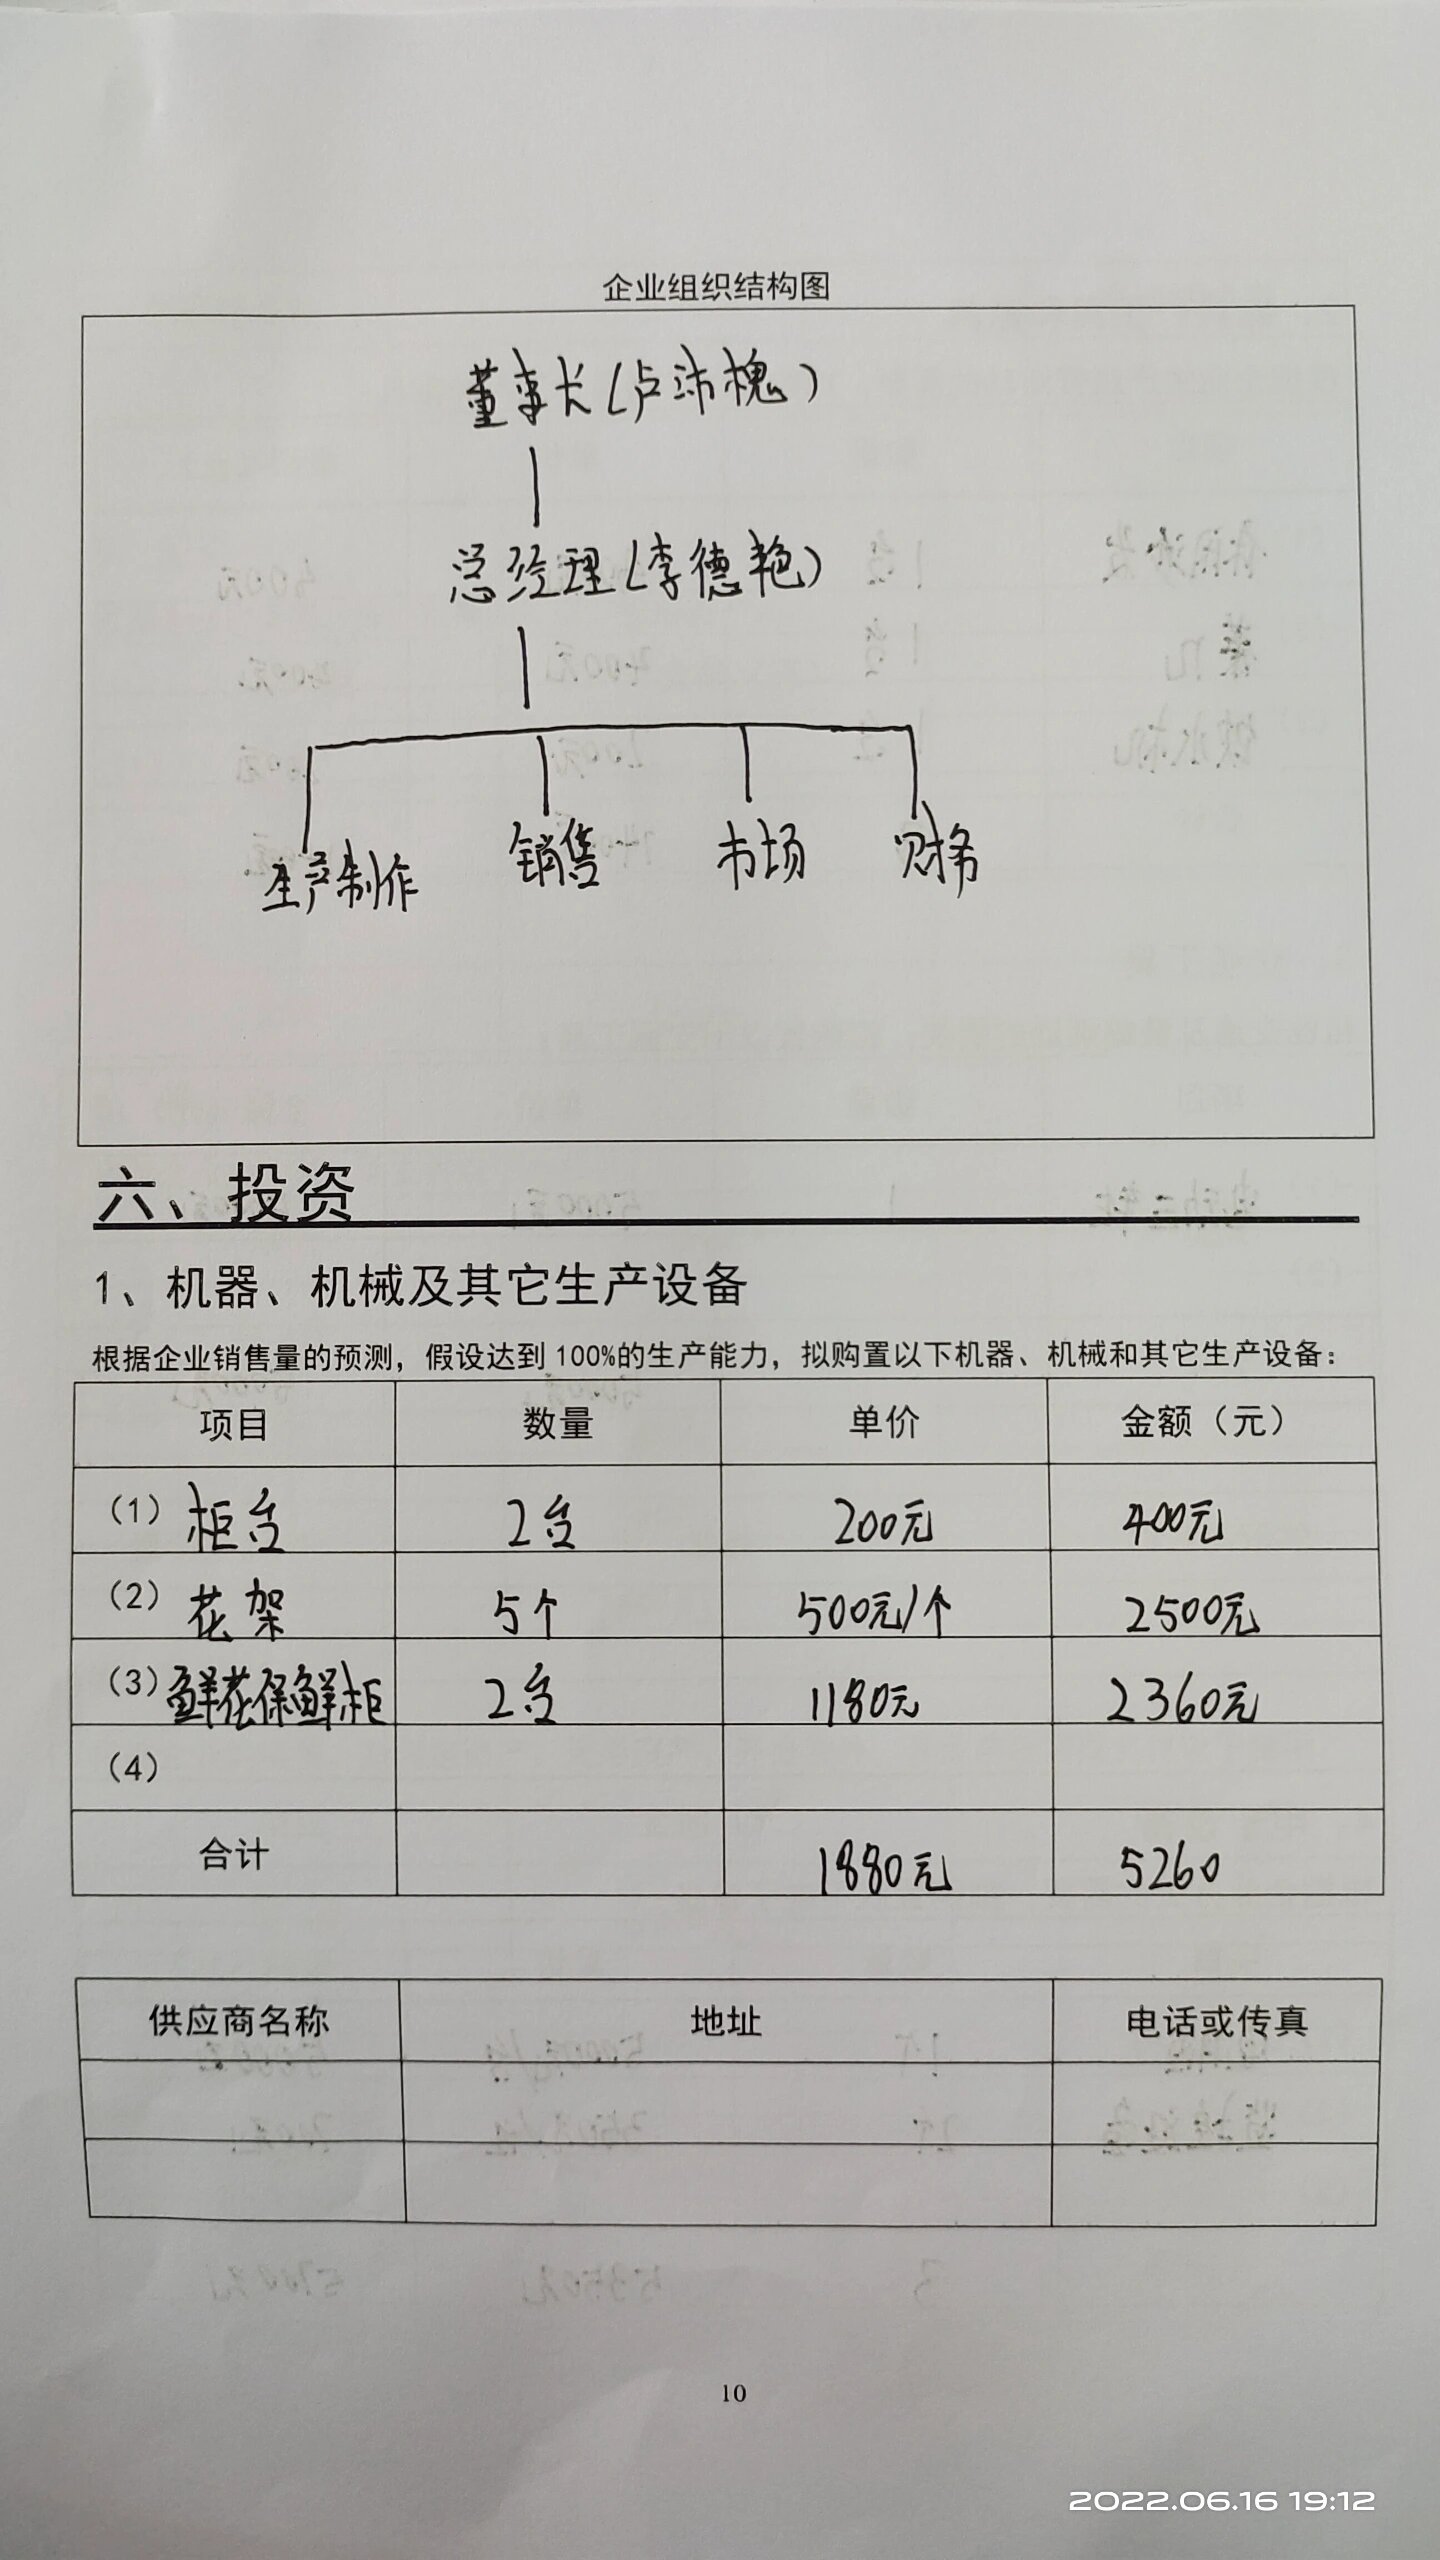 企业组织结构图
董事长(卢沛槐)
总经理(李德艳)
生产制作 销售 市场 财务
六、投资
1、机器、机械及其它生产设备
根据企业销售量的预测，假设达到100%的生产能力，拟购置以下机器、机械和其它生产设备：
项目 数量 单价 金额（元）
（1）柜台 2台 200元 400元
（2）花架 5个 500元/个 2500元
（3）鲜花保鲜柜 2台 1180元 2360元
（4）
合计 1880元 5260
供应商名称 地址 电话或传真
10
2022.06.16 19:12